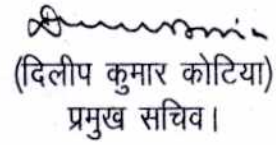 (दिलीप कुमार कोटिया)
प्रमुख सचिव।